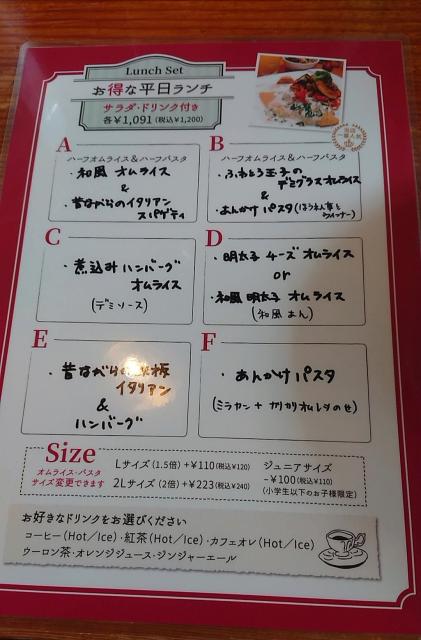 Lunch Set
お得な平日ランチ
サラダ・ドリンク付き
各¥1,091(税込¥1,200)
当店
一番人気
A
ハーフオムライス＆ハーフパスタ
・和風 オムライス
&
・昔ながらのイタリアン
スパゲティ
B
ハーフオムライス＆ハーフパスタ
・ふわとろ玉子の
デミグラスオムライス
&
・あんかけパスタ(ほうれん草と
ウインナー)
C
・煮込みハンバーグ
オムライス
(デミソース)
D
・明太子チーズオムライス
or
・和風明太子オムライス
(和風あん)
E
・昔ながらの鉄板
イタリアン
&
ハンバーグ
F
・あんかけパスタ
(ミラカン+カリカリオムレタのせ)
Size
オムライス・パスタ
サイズ変更できます
Lサイズ(1.5倍)+¥110(税込¥120)
2Lサイズ(2倍)+¥223(税込¥240)
ジュニアサイズ
-¥100(税込¥110)
(小学生以下のお子様限定)
お好きなドリンクをお選びください
コーヒー(Hot／Ice)・紅茶(Hot／Ice)・カフェオレ(Hot／Ice)
ウーロン茶・オレンジジュース・ジンジャーエール